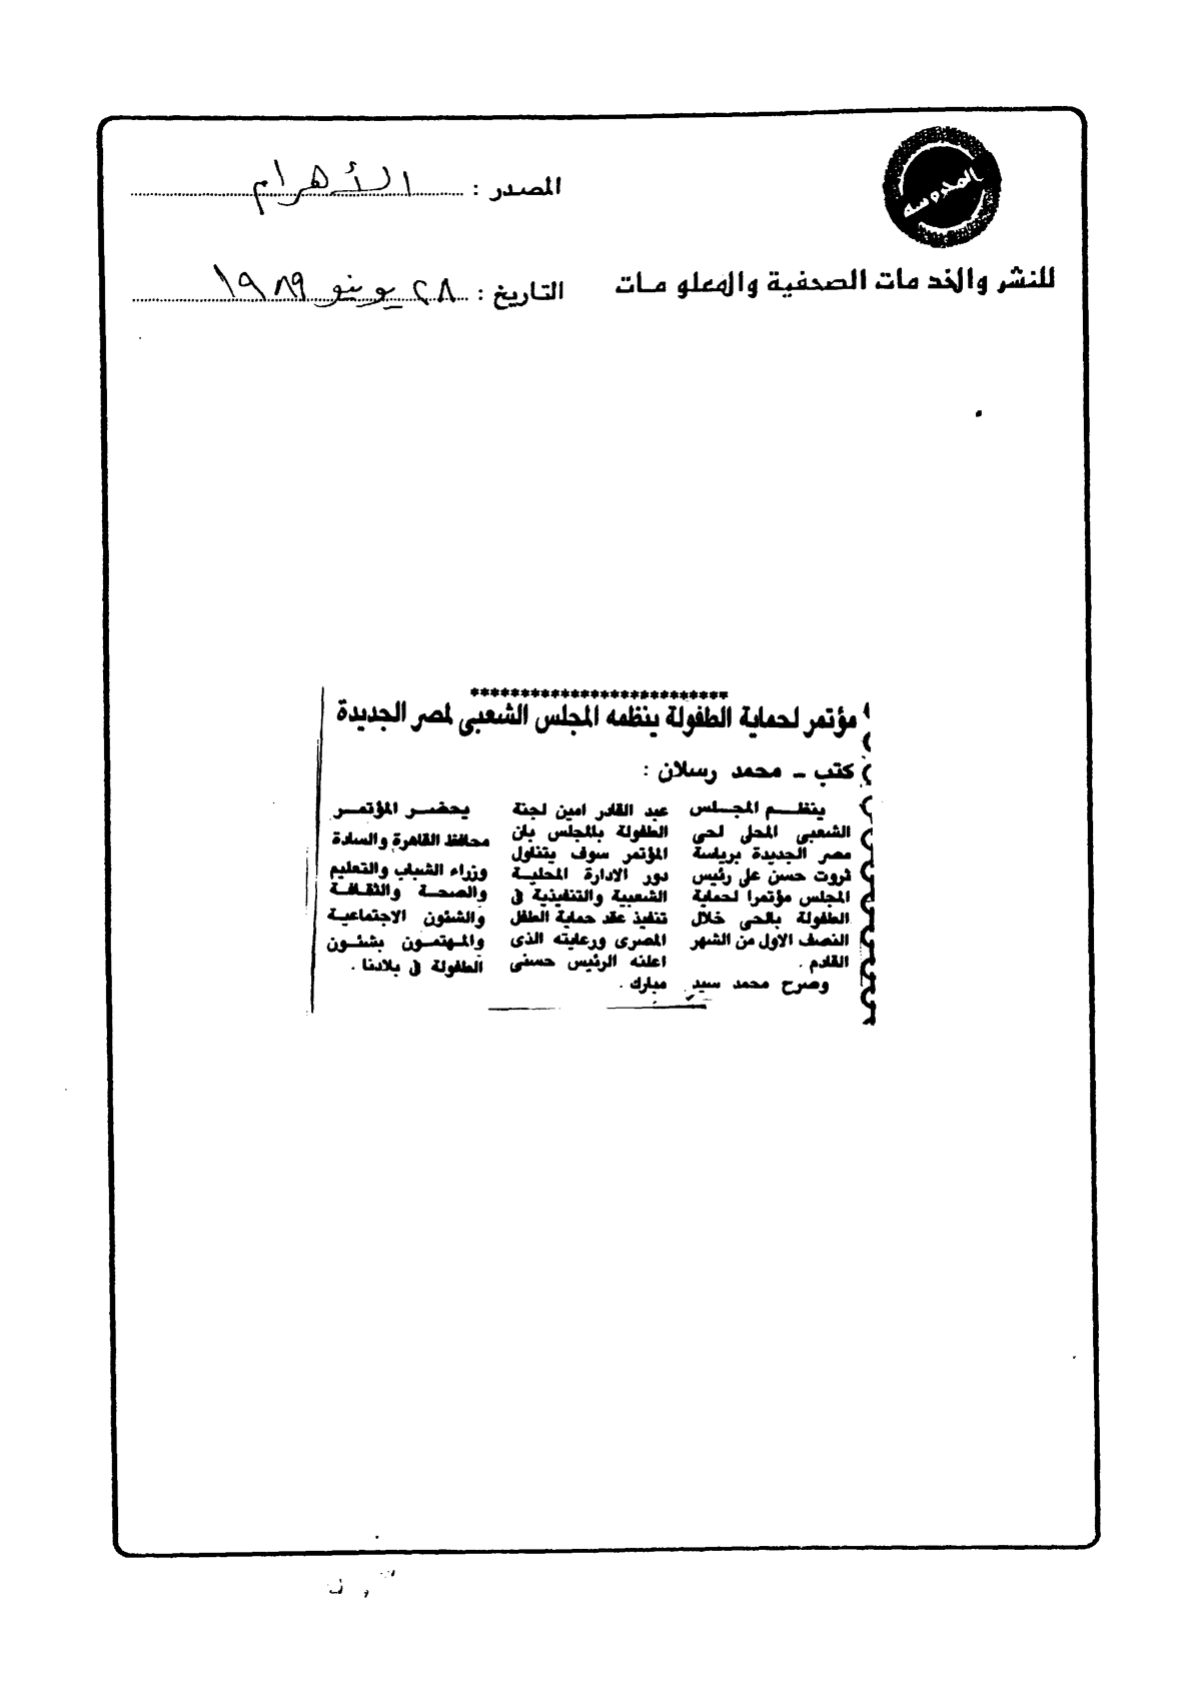 المحروسة
المصدر : الأهرام
للنشر والخدمات الصحفية والمعلومات
التاريخ : ٢٨ يونيو ١٩٨٩
مؤتمر لحماية الطفولة ينظمه المجلس الشعبى لمصر الجديدة
كتب - محمد رسلان :
ينظم المجلس
الشعبى المحلى لحى
مصر الجديدة برياسة
ثروت حسن على رئيس
المجلس مؤتمرا لحماية
الطفولة بالحى خلال
النصف الاول من الشهر
القادم .
وصرح محمد سيد
عبد القادر امين لجنة
الطفولة بالمجلس بان
المؤتمر سوف يتناول
دور الادارة المحلية
الشعبية والتنفيذية فى
تنفيذ عقد حماية الطفل
المصرى ورعايته الذى
اعلنه الرئيس حسنى
مبارك .
يحضر المؤتمر
محافظ القاهرة والسادة
وزراء الشباب والتعليم
والصحة والثقافة
والشئون الاجتماعية
والمهتمون بشئون
الطفولة فى بلادنا .